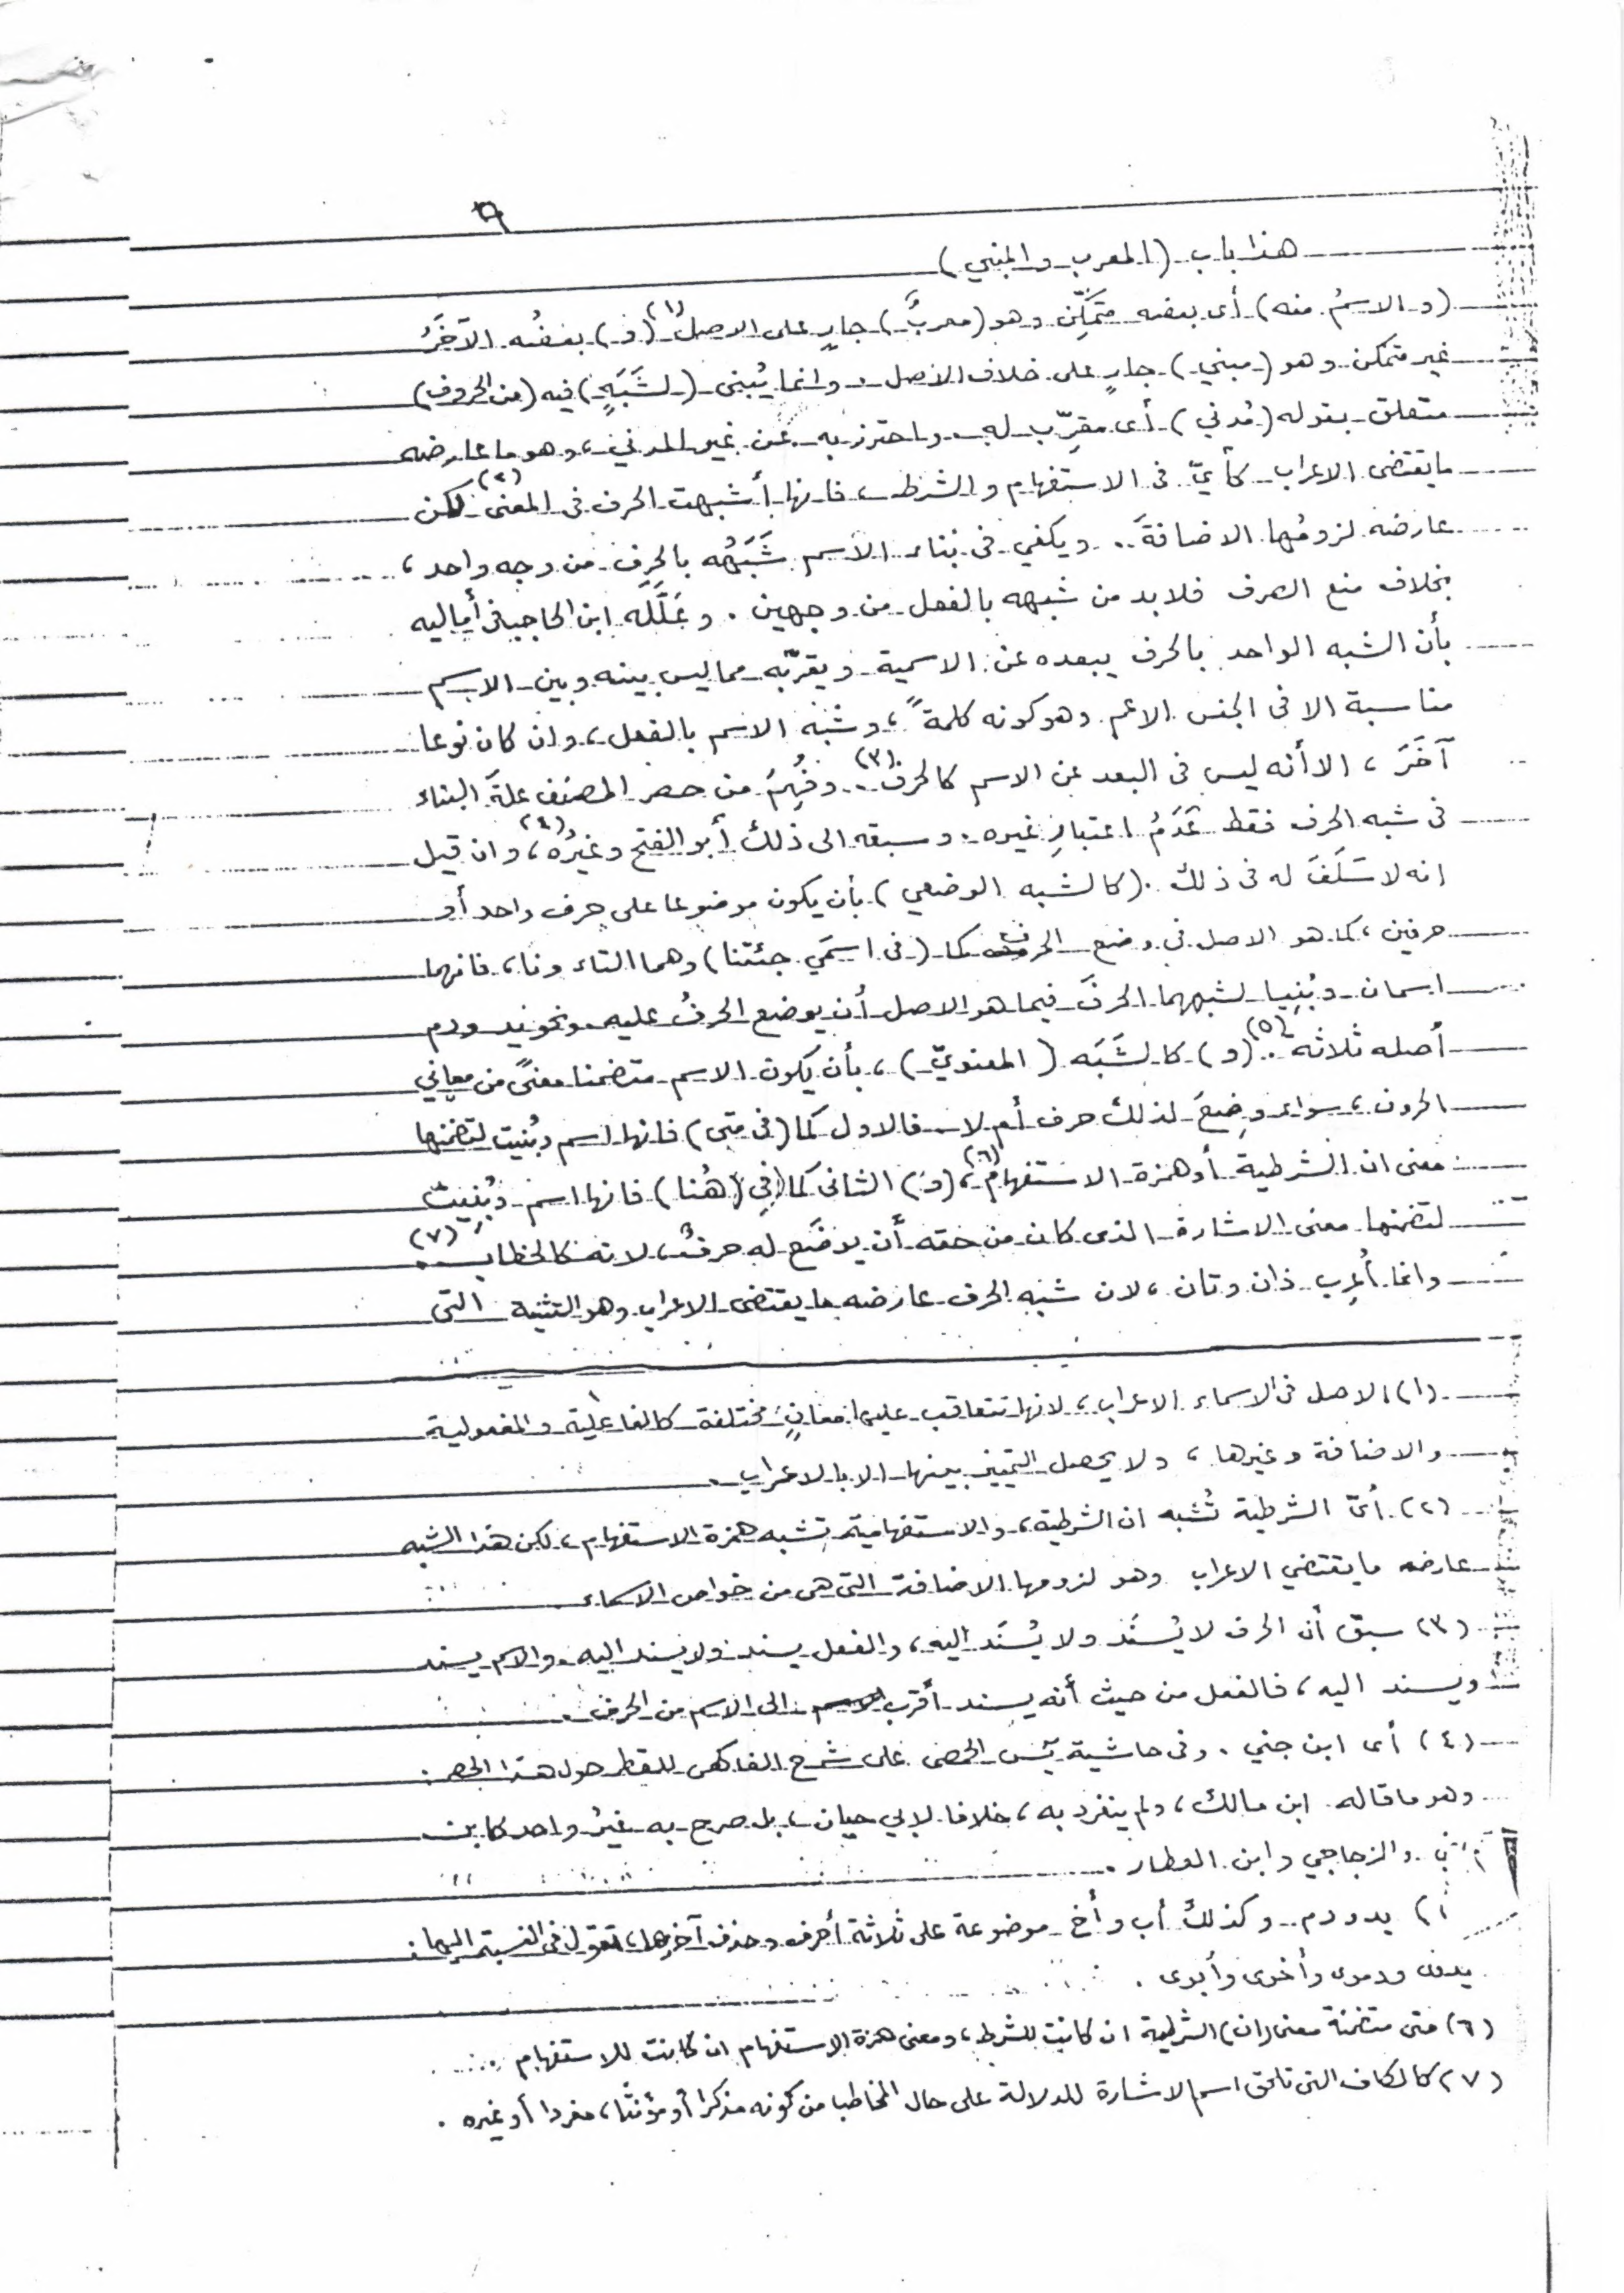 ٩
هذا باب (المعرب والمبني)
(والاسمُ منه) أى بعضه متمَكِّن وهو (معربٌ) جارٍ على الاصل (١) (و) بعضُه الآخَرُ
غير متمكن وهو (مبني) جارٍ على خلاف الاصل. وانما يُبنى (لشَبَهٍ) فيه (من الحروف)
متعلق بقوله (مُدني) أى مقرِّب له. واحترز به عن غير المدني، وهو ما عارضه
ما يقتضى الاعراب كأيّ فى الاستفهام والشرط، فانها أشبهت الحرف فى المعنى (٢) لكن
عارضه لزومُها الاضافةَ.. ويكفي فى بناء الاسم شَبَهُه بالحرف من وجه واحد،
بخلاف منع الصرف فلابد من شبهه بالفعل من وجهين. وعَلَّلَه ابن الحاجب فى أماليه
بأن الشبه الواحد بالحرف يبعده عن الاسمية ويقرّبه مما ليس بينه وبين الاسم
مناسبة الا فى الجنس الاعم وهو كونه كلمةً، وشَبَه الاسم بالفعل، وان كان نوعا
آخَرَ، الا أنه ليس فى البعد عن الاسم كالحرف (٣).. وفُهِمَ من حصر المصنف علةَ البناء
فى شبه الحرف فقط عَدَمُ اعتبارِ غيره. وسبقه الى ذلك أبو الفتح وغيرُه (٤)، وان قيل
انه لا سَلَفَ له فى ذلك. (كالشبه الوضعي) بأن يكون موضوعا على حرف واحد أو
حرفين، كما هو الاصل فى وضع الحرف كما (فى اسمَي جئتنا) وهما التاء ونا، فانهما
اسمان وبُنِيا لشبههما الحرفَ فيما هو الاصل أن يوضع الحرفُ عليه. ونحو يد ودم
أصله ثلاثة (٥).. (و) كالشَبَه (المعنويّ)، بأن يكون الاسم متضمنا معنىً من معاني
الحروف، سواء وضِعَ لذلك حرف أم لا. فالاول كما (فى متى) فانها اسم وبُنيت لتضمنها
معنى ان الشرطية أو همزة الاستفهام (٦)، (و) الثانى كما (في هُنا) فانها اسم وبُنِيتْ
لتضمنها معنى الاشارة الذى كان من حقه أن يوضَع له حرفٌ، لانه كالخطاب (٧).
وانما أُعرِب ذان وتان، لان شبه الحرف عارضه ما يقتضى الاعراب وهو التثنية التى
(١) الاصل فى الاسماء الاعراب، لانها تتعاقب عليها معانٍ مختلفة كالفاعلية والمفعولية
والاضافة وغيرها، ولا يحصل التمييز بينها الا بالاعراب.
(٢) أىّ الشرطية تُشبه ان الشرطية، والاستفهامية تشبه همزة الاستفهام، لكن هذا الشبه
عارضه ما يقتضي الاعراب وهو لزومها الاضافة التى هى من خواص الاسماء.
(٣) سبق أن الحرف لا يُسنَد ولا يُسنَد اليه، والفعل يسند ولا يسند اليه. والاسم يسند
ويسند اليه، فالفعل من حيث أنه يسند أقرب الى الاسم من الحرف.
(٤) أى ابن جني. وفى حاشية يٰس الحمصى على شرح الفاكهى للقطر حول هذا الحصر:
وهو ما قاله ابن مالك، ولم ينفرد به، خلافا لابي حيان، بل صرح به غيرُ واحد كابن
والزجاجي وابن العطار.
يد ودم.. وكذلك أب وأخ موضوعة على ثلاثة أحرف وحذف آخرها، تقول فى النسبة اليها:
يدوى ودموى وأخوى وأبوى.
(٦) متى متضمنة معنى (ان) الشرطية ان كانت للشرط، ومعنى همزة الاستفهام ان كانت للاستفهام.
(٧) كالكاف التى تلحق اسم الاشارة للدلالة على حال المخاطب من كونه مذكرا أو مؤنثا، مفردا أو غيره.